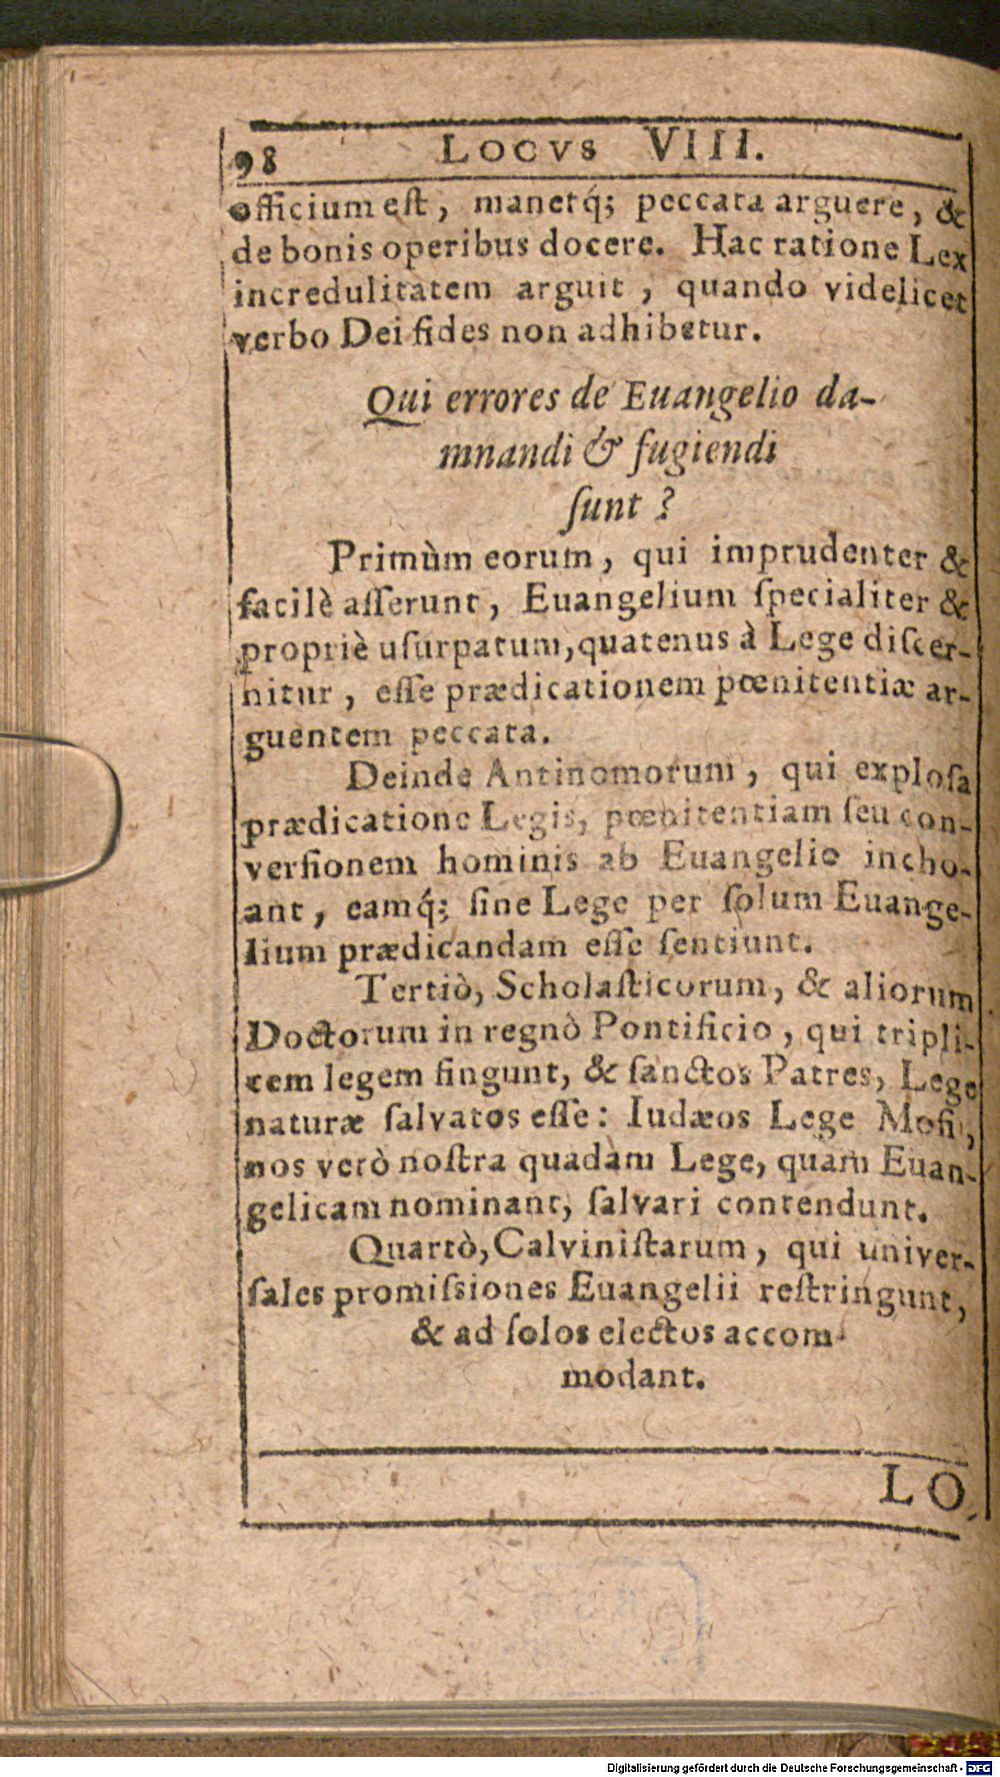 98 LOCVS VIII.
officium eſt, manetq́; peccata arguere, &
de bonis operibus docere. Hac ratione Lex
incredulitatem arguit, quando videlicet
verbo Dei fides non adhibetur.
Qui errores de Euangelio da-
mnandi & fugiendi
ſunt?
Primùm eorum, qui imprudenter &
facilè aſſerunt, Euangelium ſpecialiter &
propriè uſurpatum, quatenus à Lege diſcer-
nitur, eſſe prædicationem pœnitentiæ ar-
guentem peccata.
Deinde Antinomorum, qui exploſa
prædicatione Legis, pœnitentiam ſeu con-
verſionem hominis ab Euangelio incho-
ant, eamq́; ſine Lege per ſolum Euange-
lium prædicandam eſſe ſentiunt.
Tertiò, Scholaſticorum, & aliorum
Doctorum in regnò Pontificio, qui tripli-
cem legem fingunt, & ſanctos Patres, Lege
naturæ ſalvatos eſſe: Iudæos Lege Moſi,
nos verò noſtra quadam Lege, quam Euan-
gelicam nominant, ſalvari contendunt.
Quartò, Calviniſtarum, qui univer-
ſales promiſsiones Euangelii reſtringunt,
& ad ſolos electos accom-
modant.
LO
Digitalisierung gefördert durch die Deutsche Forschungsgemeinschaft - DFG